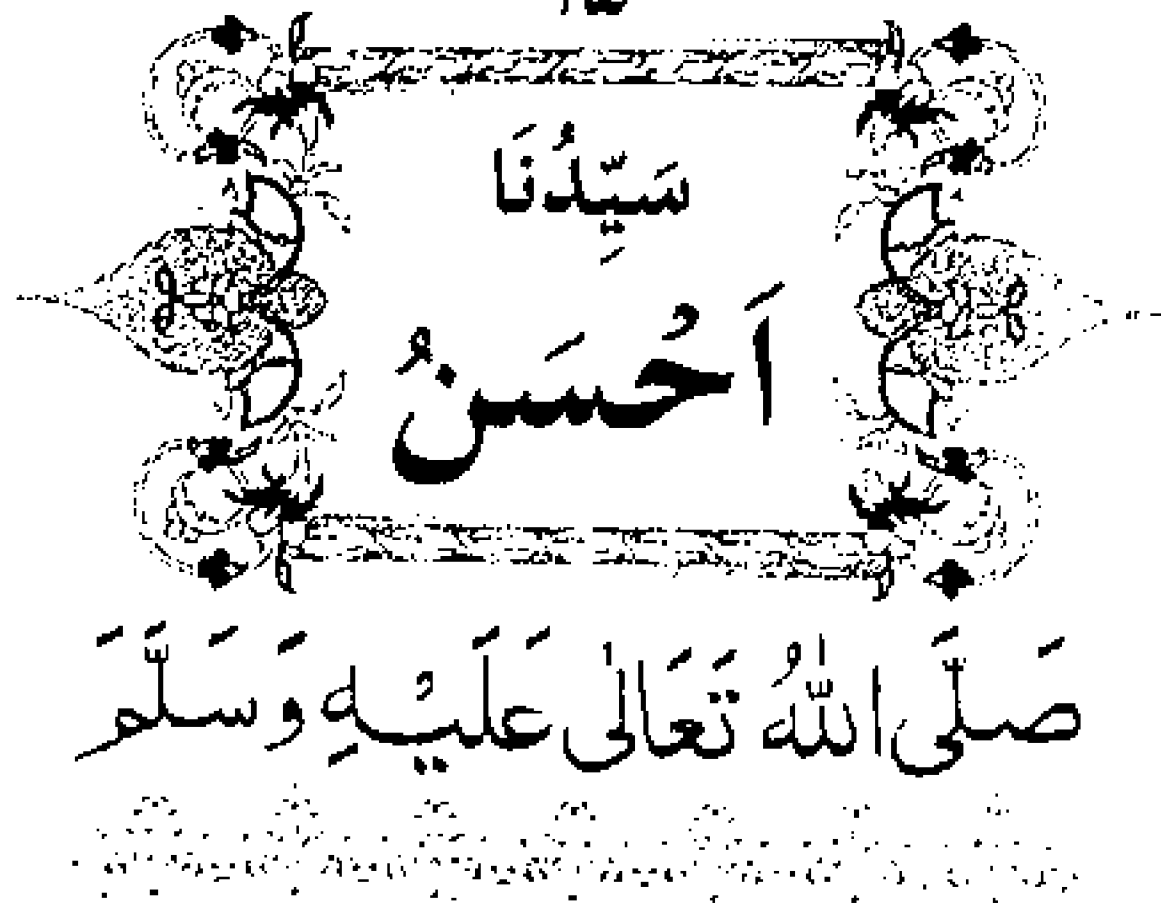 سَيِّدُنَا
اَحُسَنُ
صَلَّى اللّٰهُ تَعَالٰى عَلَيْهِ وَسَلَّمَ